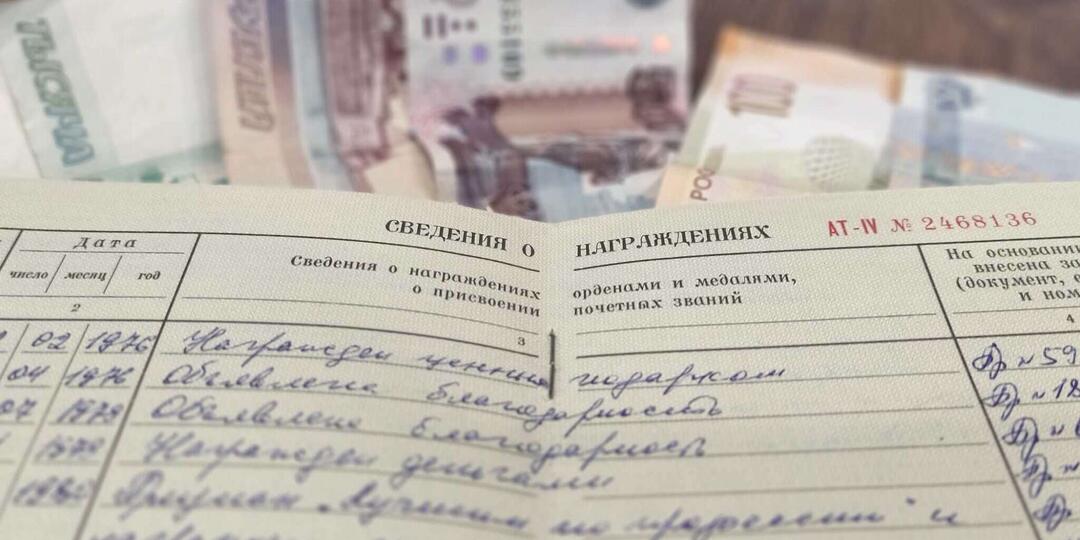 ТЫСЯЧА
100
РОС
СВЕДЕНИЯ О НАГРАЖДЕНИЯХ АТ-IV № 2468136
Дата
число месяц год
Сведения о награждениях орденами и медалями,
о присвоении почетных званий
На основании
внесена за
(документ,
и ном
2 3 4
02 1976 Награжден ценным подарком Пр №59
04 1976 Объявлена благодарность Пр №18
07 1979 Объявлена благодарность Пр №
1979 Награжден деньгами Пр №
Признан "Лучшим по профессии" и Пр